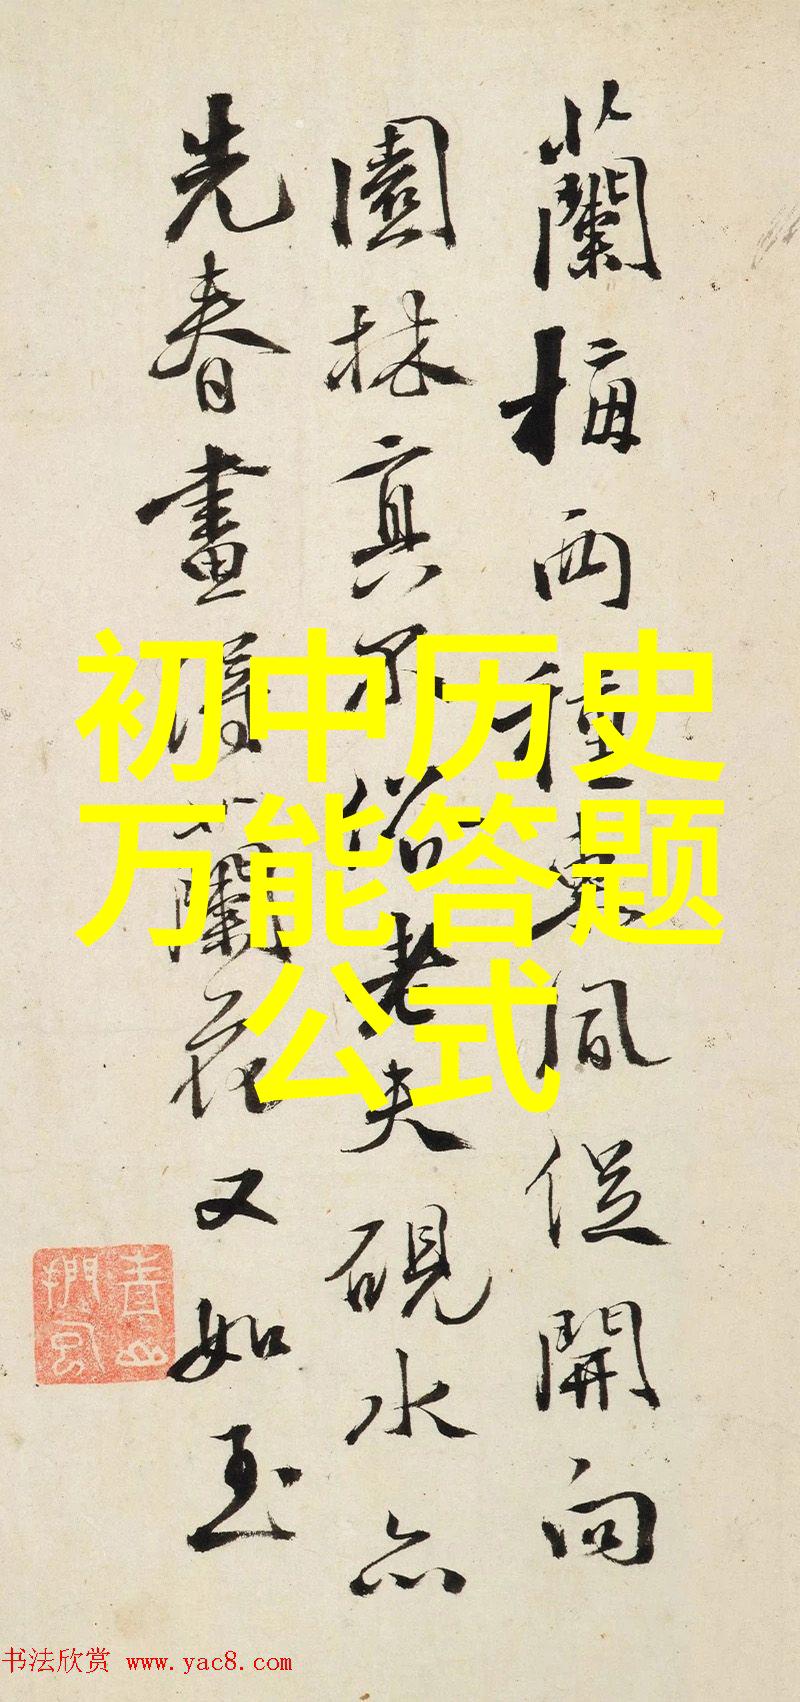 蘭梅兩種東風從開向
園林真不俗老夫硯水亦
先春畫得蘭花又如玉
初中历史
万能答题
公式
书法欣赏 www.yac8.com